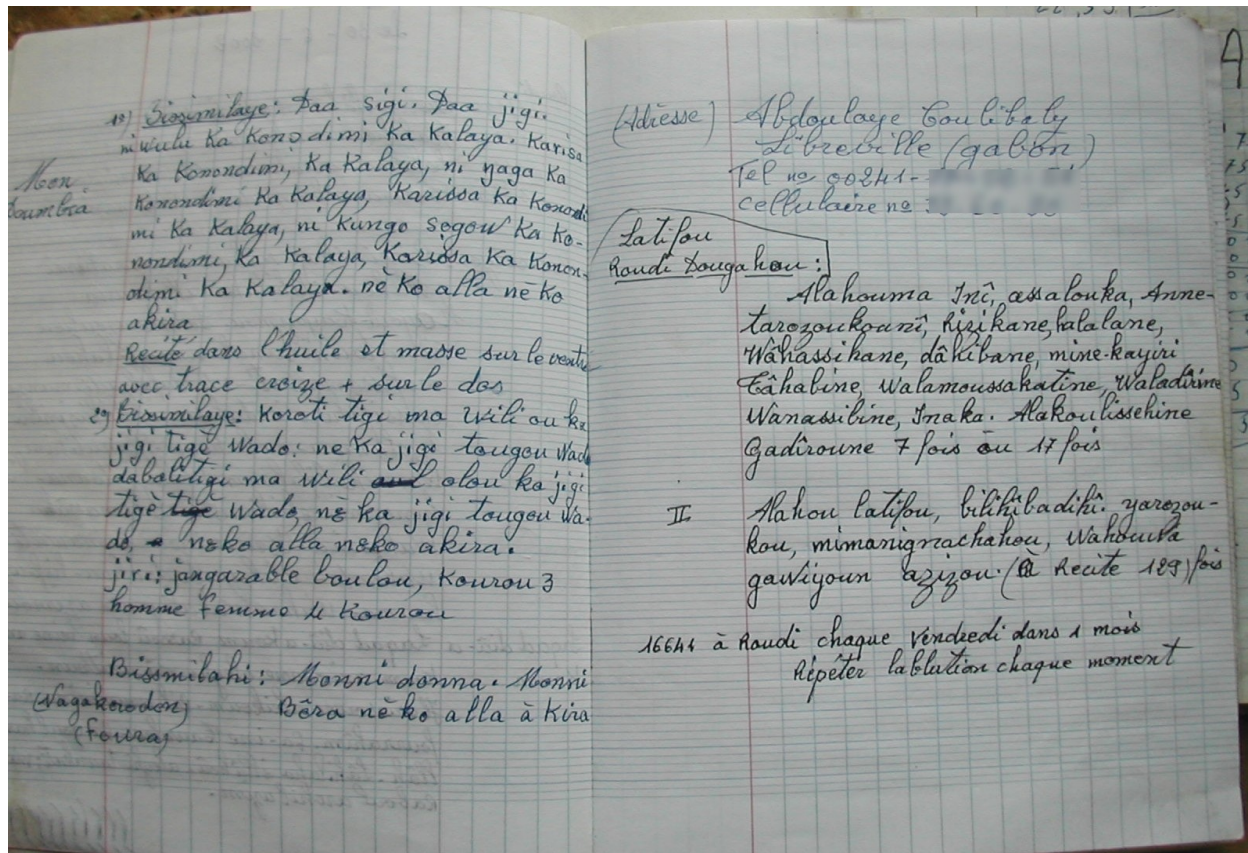 1º) Bissimilaye: Daa sigi. Daa jigi.
ni wulu Ka Konodimi Ka Kalaya. Karisa
Ka Konondimi, Ka Kalaya, ni yaga Ka
Konondimi Ka Kalaya, Karissa Ka Konondi
mi Ka Kalaya, ni Kungo sogow Ka Ko-
nondimi, Ka Kalaya, Karissa Ka Konon-
dimi Ka Kalaya. nè Ko alla nè Ko
akira
Recité dans l'huile et masse sur le ventre
avec trace croize + sur le dos
2º) Bissimilaye: Koroti tigi ma wili ou ka
jigi tigè Wado: ne Ka jigi tougou Wado
dabalitigi ma wili olou ka jigi
tigè Wado, nè ka jigi tougou Wa-
do, nèko alla nèko akira.
jiri: jangarable boulou, Kourou 3
homme femme 4 Kourou
Bissmilahi: Monni donna. Monni
(Nagakorodon) Bôra nè ko alla à Kira
(Foura)
Mon
Soumbia
(Adresse) Abdoulaye Coulibaly
Libreville (gabon)
Tel nº 00241-
cellulaire nº
Latifou
Raudi Dougahou:
Alahouma Inî, assalouka, Anne-
tarozoukounî, Rizikane, halalane,
Wâhassihane, dâhibane, mine-kayiri
Tâhabine, Walamoussakatine, Waladirine
Wanassibine, Inaka. Alakoulissehine
Gadîroune 7 fois ou 17 fois
II Alahou latifou, bilihibadihî. yarozou-
kou, mimanignachahou, Wahouwa
gawiyoun azizou. (à Recite 129) fois
16641 à Raudi chaque Vendredi dans 1 mois
Répéter lablution chaque moment